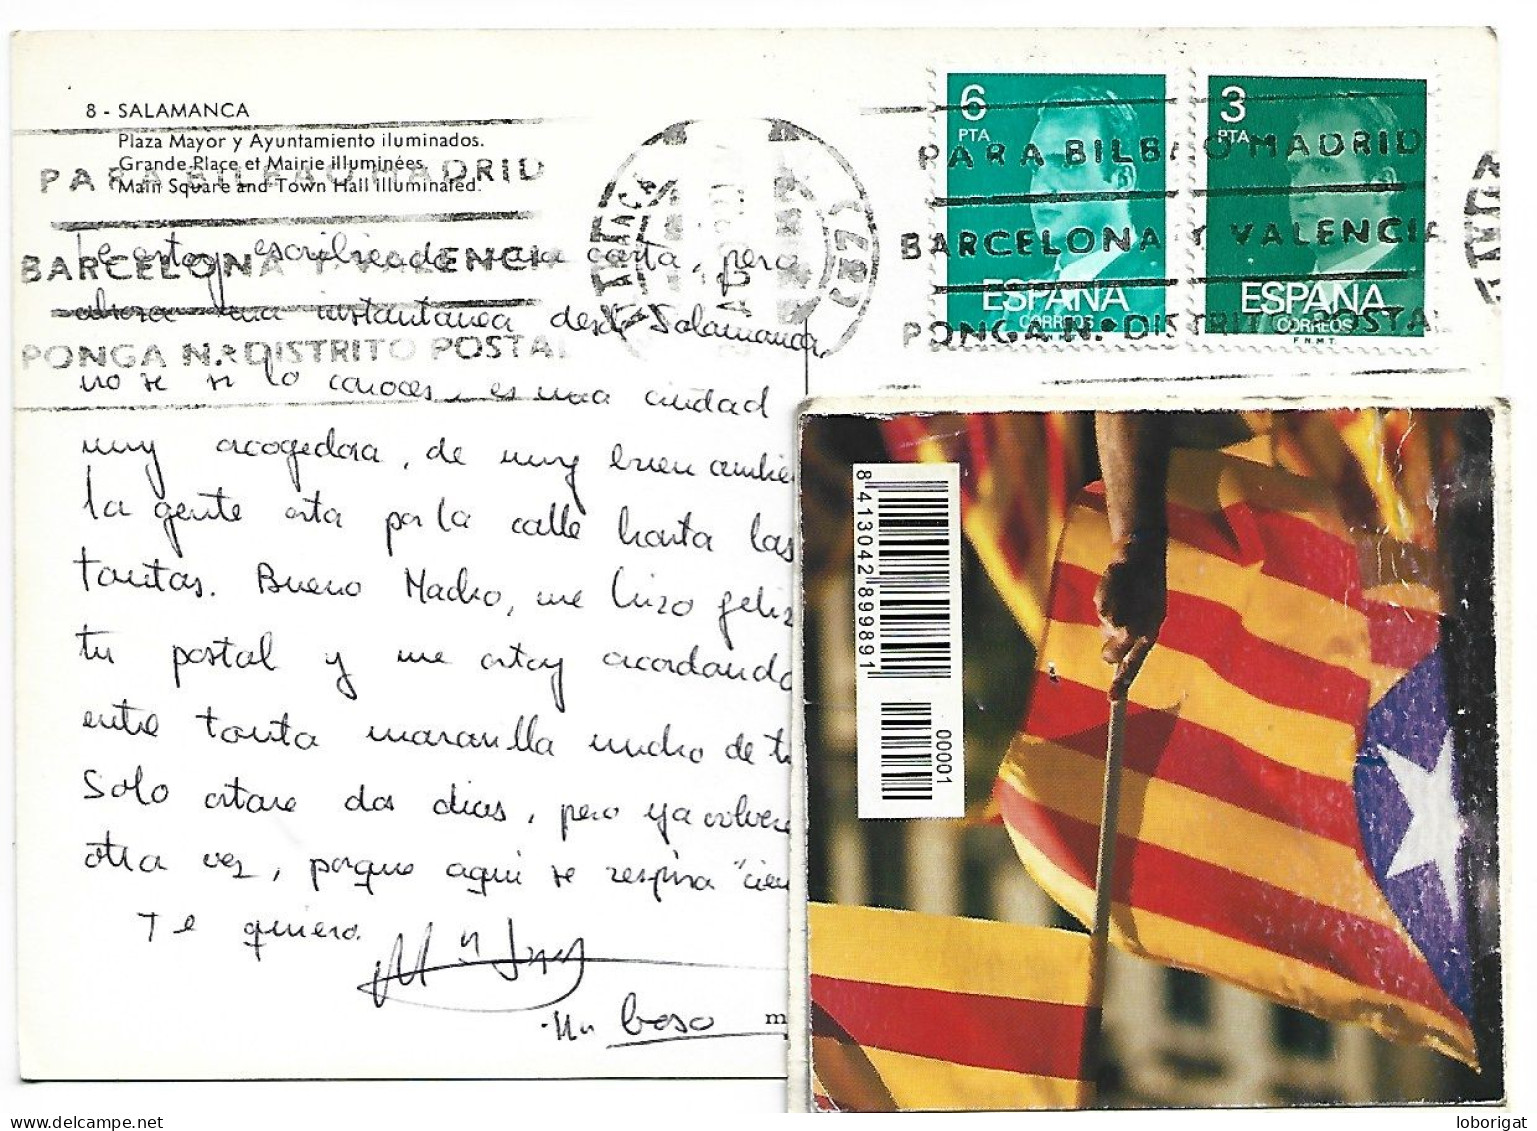 8 - SALAMANCA
Plaza Mayor y Ayuntamiento iluminados.
Grande Place et Mairie illuminées.
Main Square and Town Hall illuminated.
PARA BILBAO MADRID
BARCELONA Y VALENCIA
PONGA N.º DISTRITO POSTAL
6
PTA
ESPAÑA
CORREOS
3
PTA
ESPAÑA
CORREOS
F.N.M.T.
PARA BILBAO MADRID
BARCELONA Y VALENCIA
PONGA N.º DISTRITO POSTAL
Te estoy escribiendo una carta, pero
ahora una instantanea desde Salamanca,
no se si lo conoces, es una ciudad
muy acogedora, de muy buen ambie
la gente esta por la calle hasta las
tantas. Bueno Madro, me hizo feliz
tu postal y me estoy acordando
entre tanta maravilla mucho de ti
Solo estare dos dias, pero ya volvere
otra vez, porque aqui se respira "cien
Te quiero.
Un beso
8 413042 899891
00001
loborigat